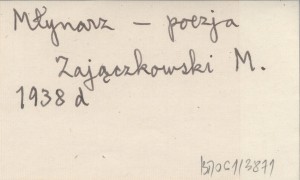 Młynarz – poezja
Zajączkowski M.
1938 d